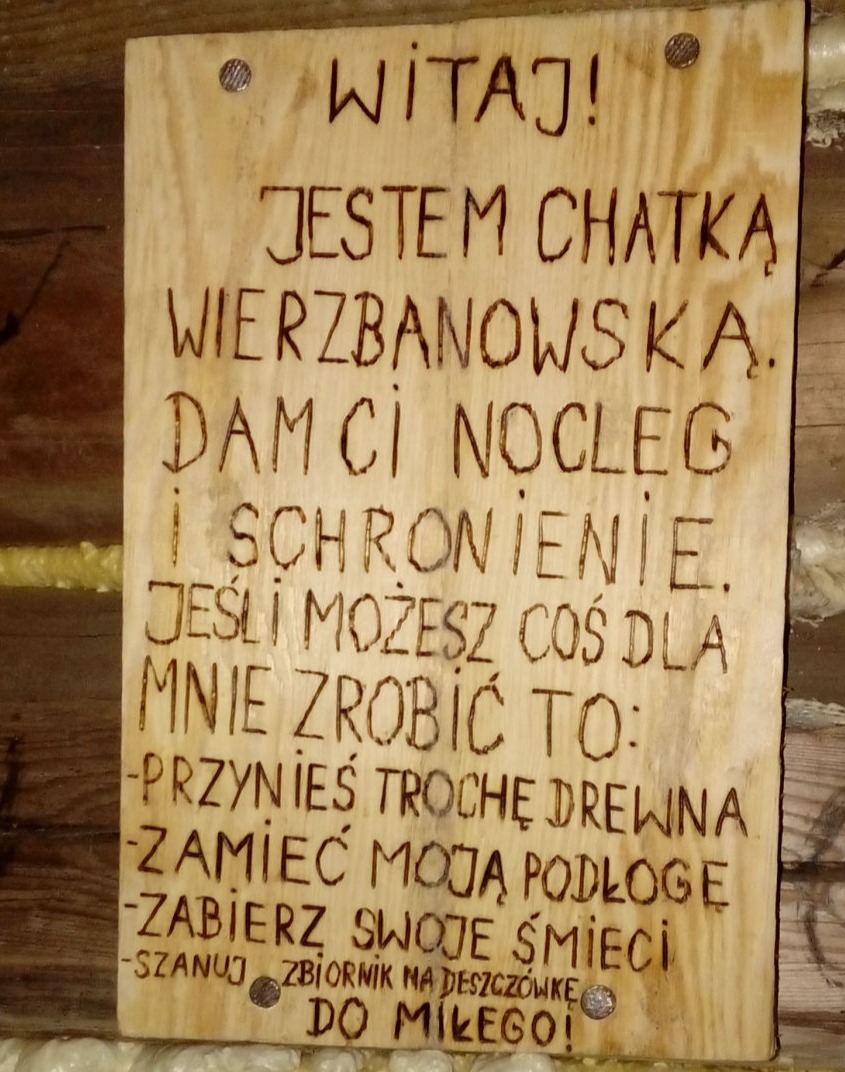 WiTAJ!
JESTEM CHATKĄ
WIERZBANOWSKĄ.
DAM Ci NOCLEG
i SCHRONiENiE.
JEŚLi MOŻESZ COŚ DLA
MNIE ZROBiĆ TO:
-PRZYNiEŚ TROCHĘ DREWNA
-ZAMiEĆ MOJĄ PODŁOGĘ
-ZABiERZ SWOJE ŚMiECi
-SZANUJ ZBiORNiK NA DESZCZÓWKĘ
DO MiŁEGO!